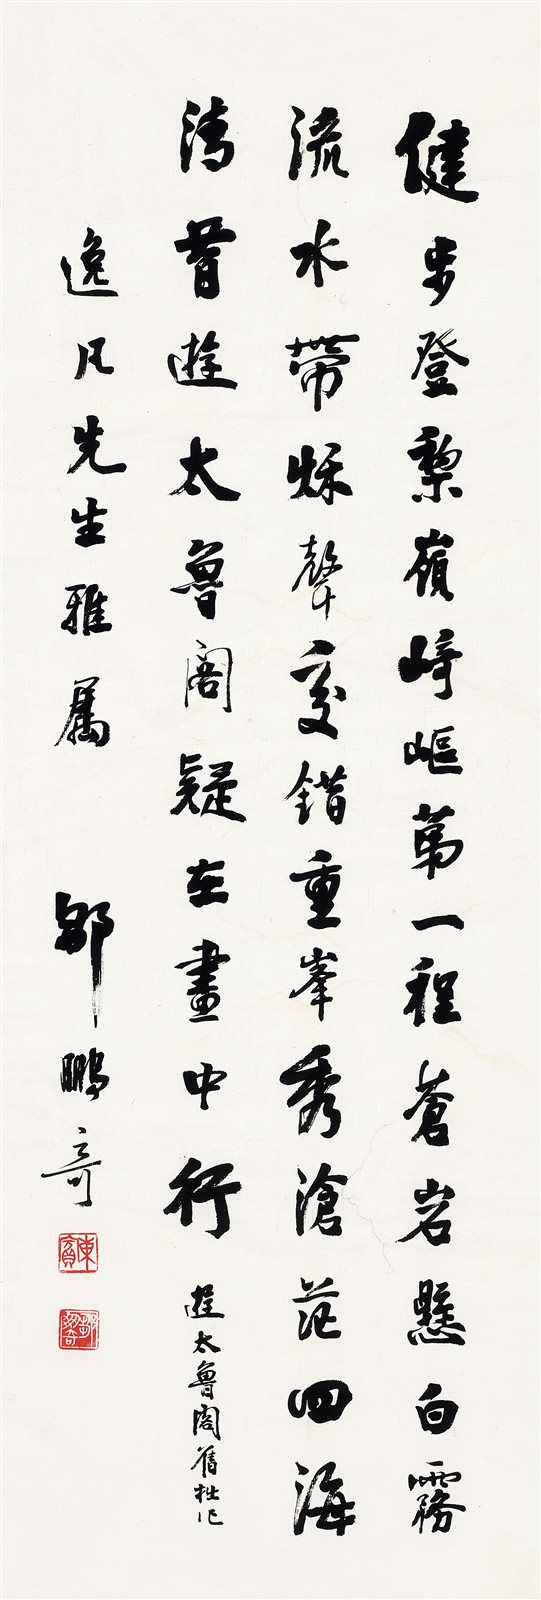 健步登棃嶺崎嶇第一程蒼岩懸白霧
流水帶秌聲交錯重峯秀滄茫四海
清曾遊太魯閣疑在畫中行
遊太魯閣舊拙作
逸凡先生雅屬
鄒鵬奇
東賓